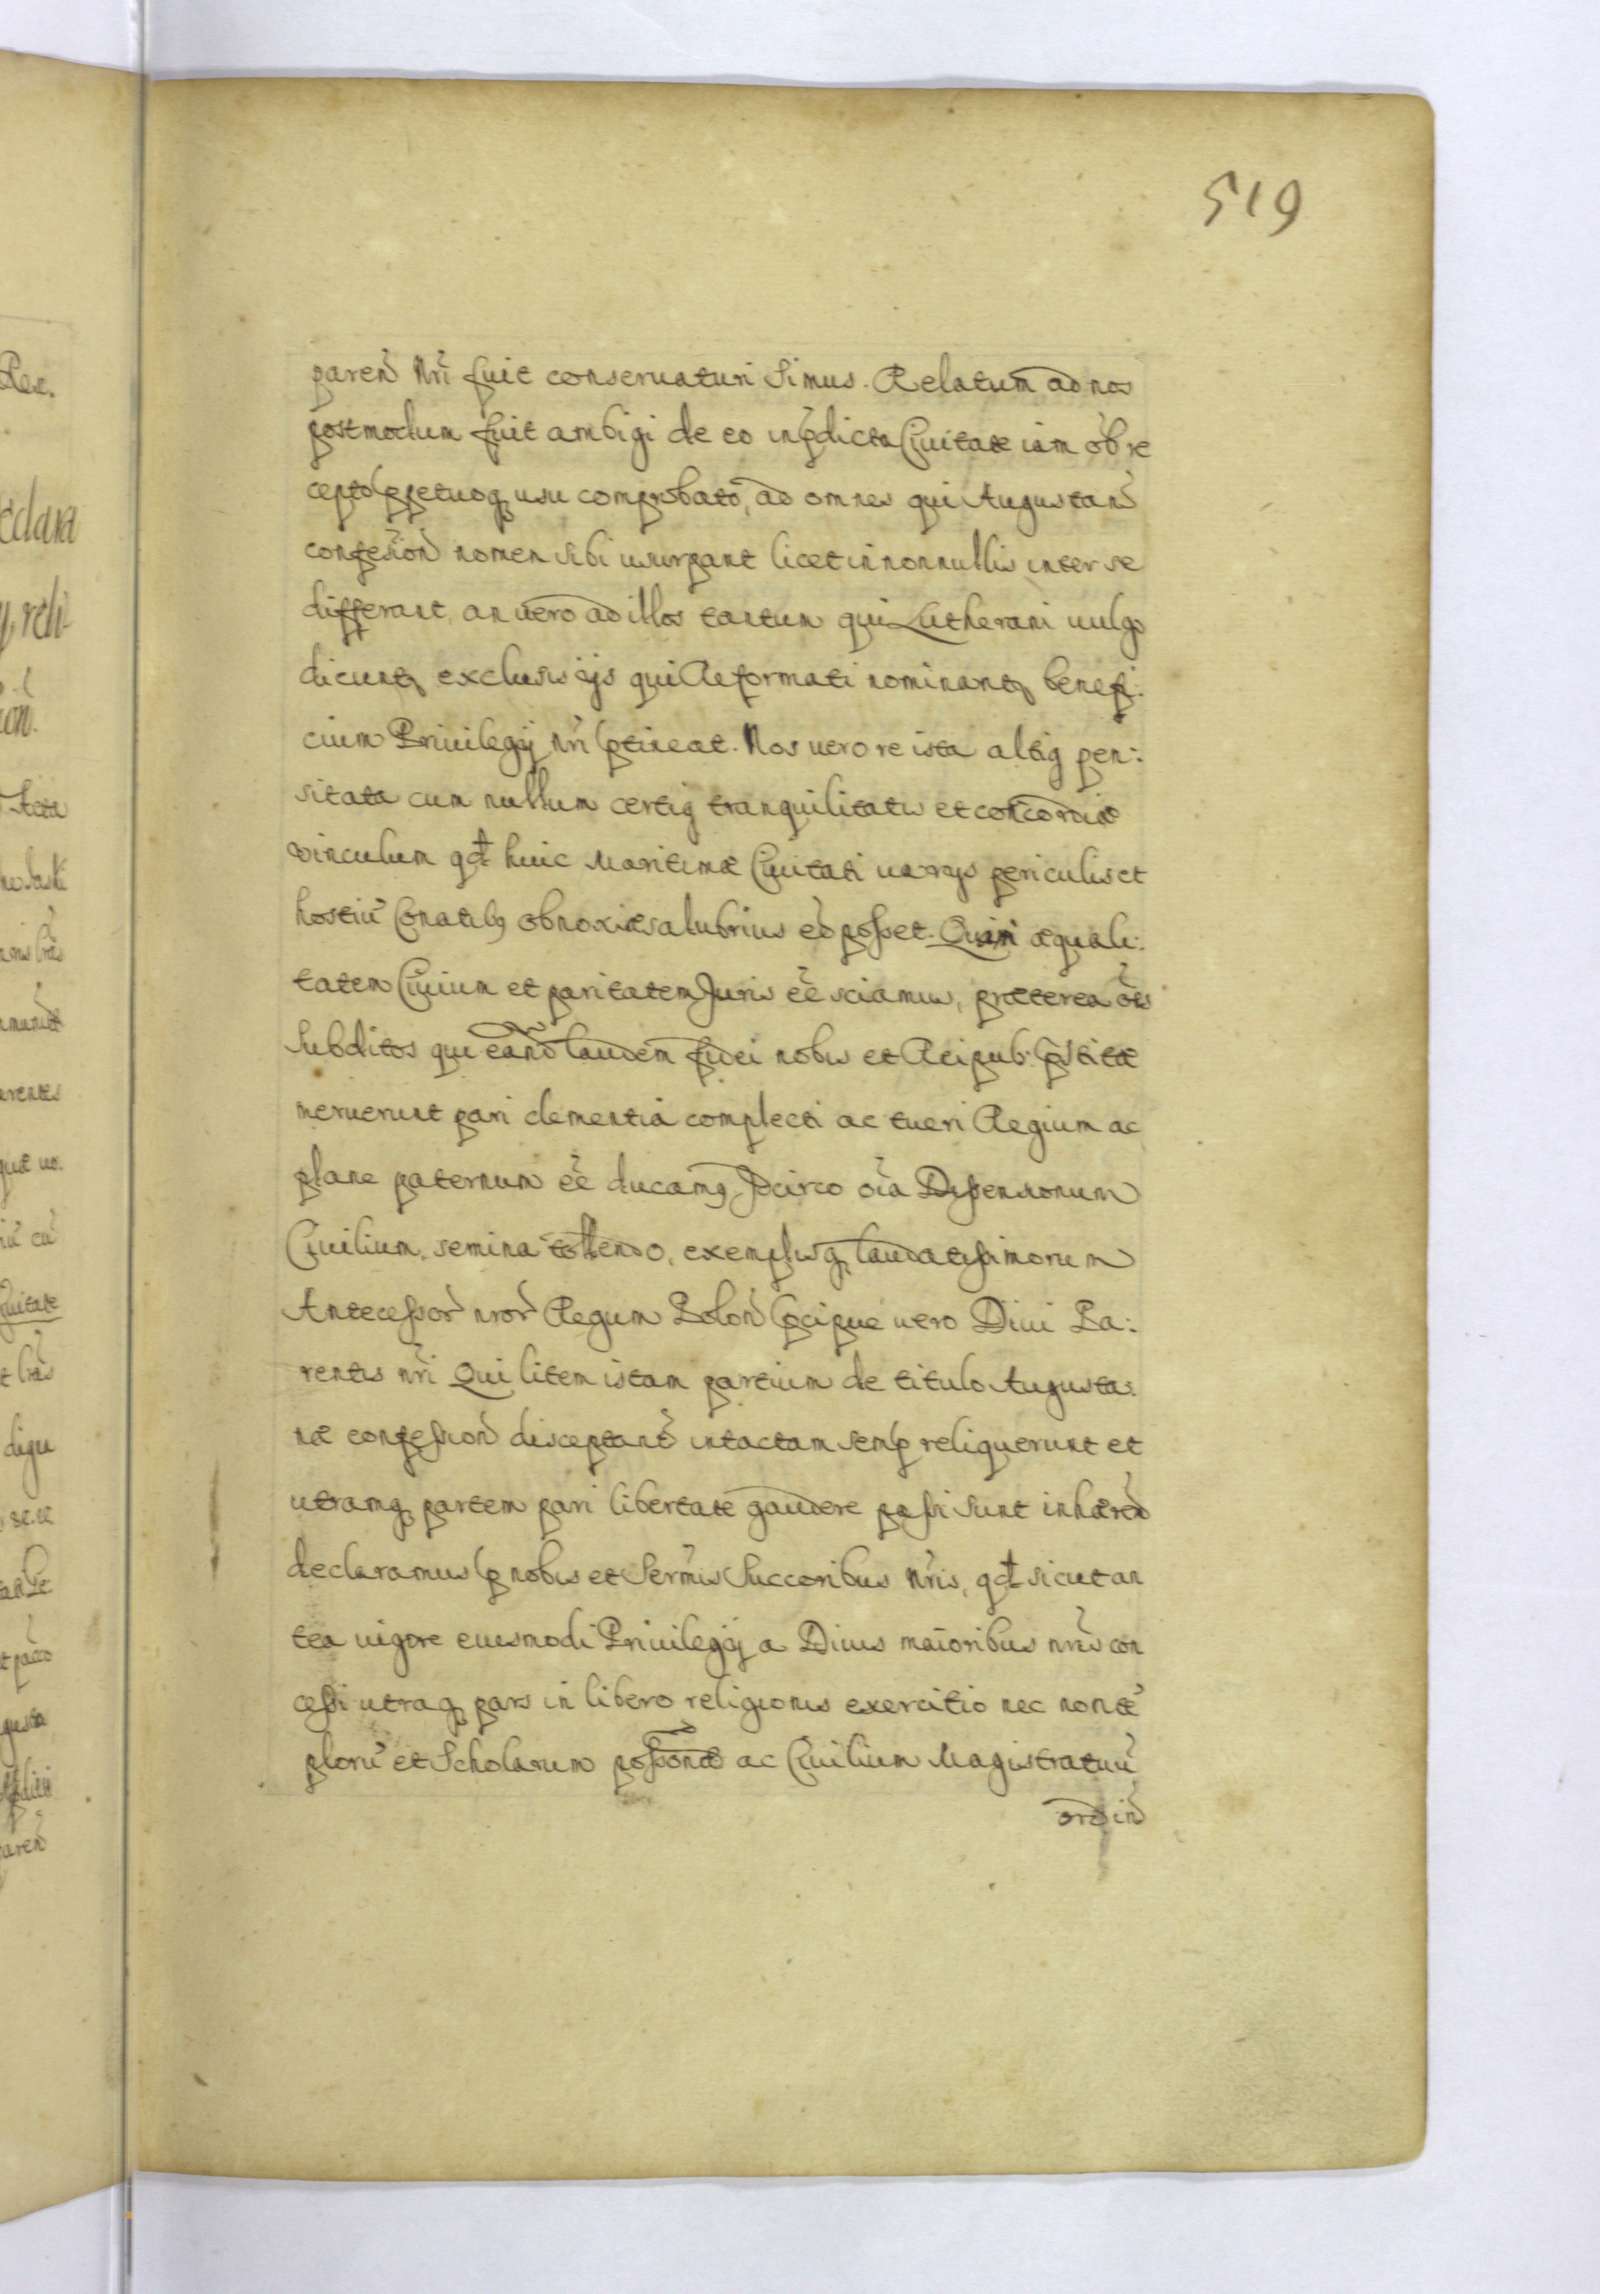 519
paren̄ Nr̄i fuit conseruaturi simus. Relatum ad nos
postmodum fuit ambigi de eo in p̄dicta Ciuitate iam ob re
cepto ꝑpetuoq; usu comprobato, ad omnes qui Augustan̄
confession̄ nomen sibi usurpant licet in nonnullis inter se
differant, an uero ad illos tantum qui Lutherani uulgo
dicunt̄ exclusis ijs qui Reformati nominant̄ benefi:
cium Priuilegij nr̄i ꝑtineat. Nos uero re ista altiq pen:
sitata cum nullum certiq tranquilitatis et concordiæ
vinculum qd̄ huic Maritimæ Ciuitati uarijs periculis et
hostiū Conatibq obnoxiæ salubrius eo posset. Quin æquali:
tatem Ciuium et paritatem Juris eē sciamus, præterea oēs
subditos qui eand̄ laudem fidei nobis et Reipub: p̄stitæ
meruerunt pari clementia complecti ac tueri Regium ac
plane paternum eē ducamq, Idcirco oīa Dissensionum
Ciuilium, semina tollendo, exemplisq, laudatissimorum
Antecessor̄ nror̄ Regum Polon̄ p̄cipue uero Diui Pa:
rentis nr̄i Qui litem istam partium de titulo Augusta:
næ confession̄ disceptant̄ intactam semꝑ reliquerunt et
utramq, partem pari libertate gaudere passi sunt inhæren̄
declaramus ꝑ nobis et Serm̄is Succoribus Nr̄is, qd̄ sicut an
tea uigore euismodi Priuilegij a Diuis maioribus nr̄is con
cessi utraq, pars in libero religionis exercitio nec non tē
plorū et Scholarum possōne ac Ciuilium Magistratuū
ordin̄